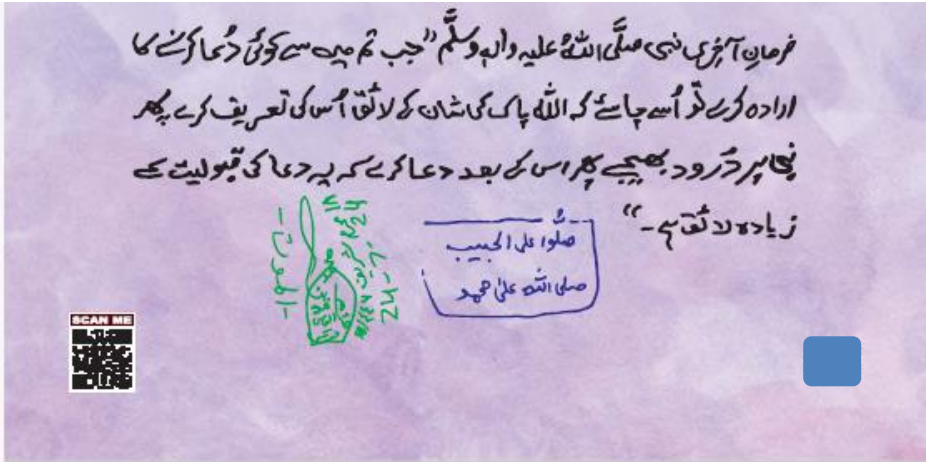 فرمانِ آخری نبی صلَّی اللّٰهُ علیہ واٰلہٖ وسلَّم "جب تم میں سے کوئی دُعا کرنے کا
ارادہ کرے تو اُسے چاہئے کہ اللّٰہ پاک کی شان کے لائق اُس کی تعریف کرے پھر
نبی پر دُرود بھیجے پھر اس کے بعد دعا کرے کہ یہ دعا کی قبولیت کے
زیادہ لائق ہے۔"
صلُّوا علی الحبیب
صلی اللّٰہ علیٰ محمد
24
SCAN ME